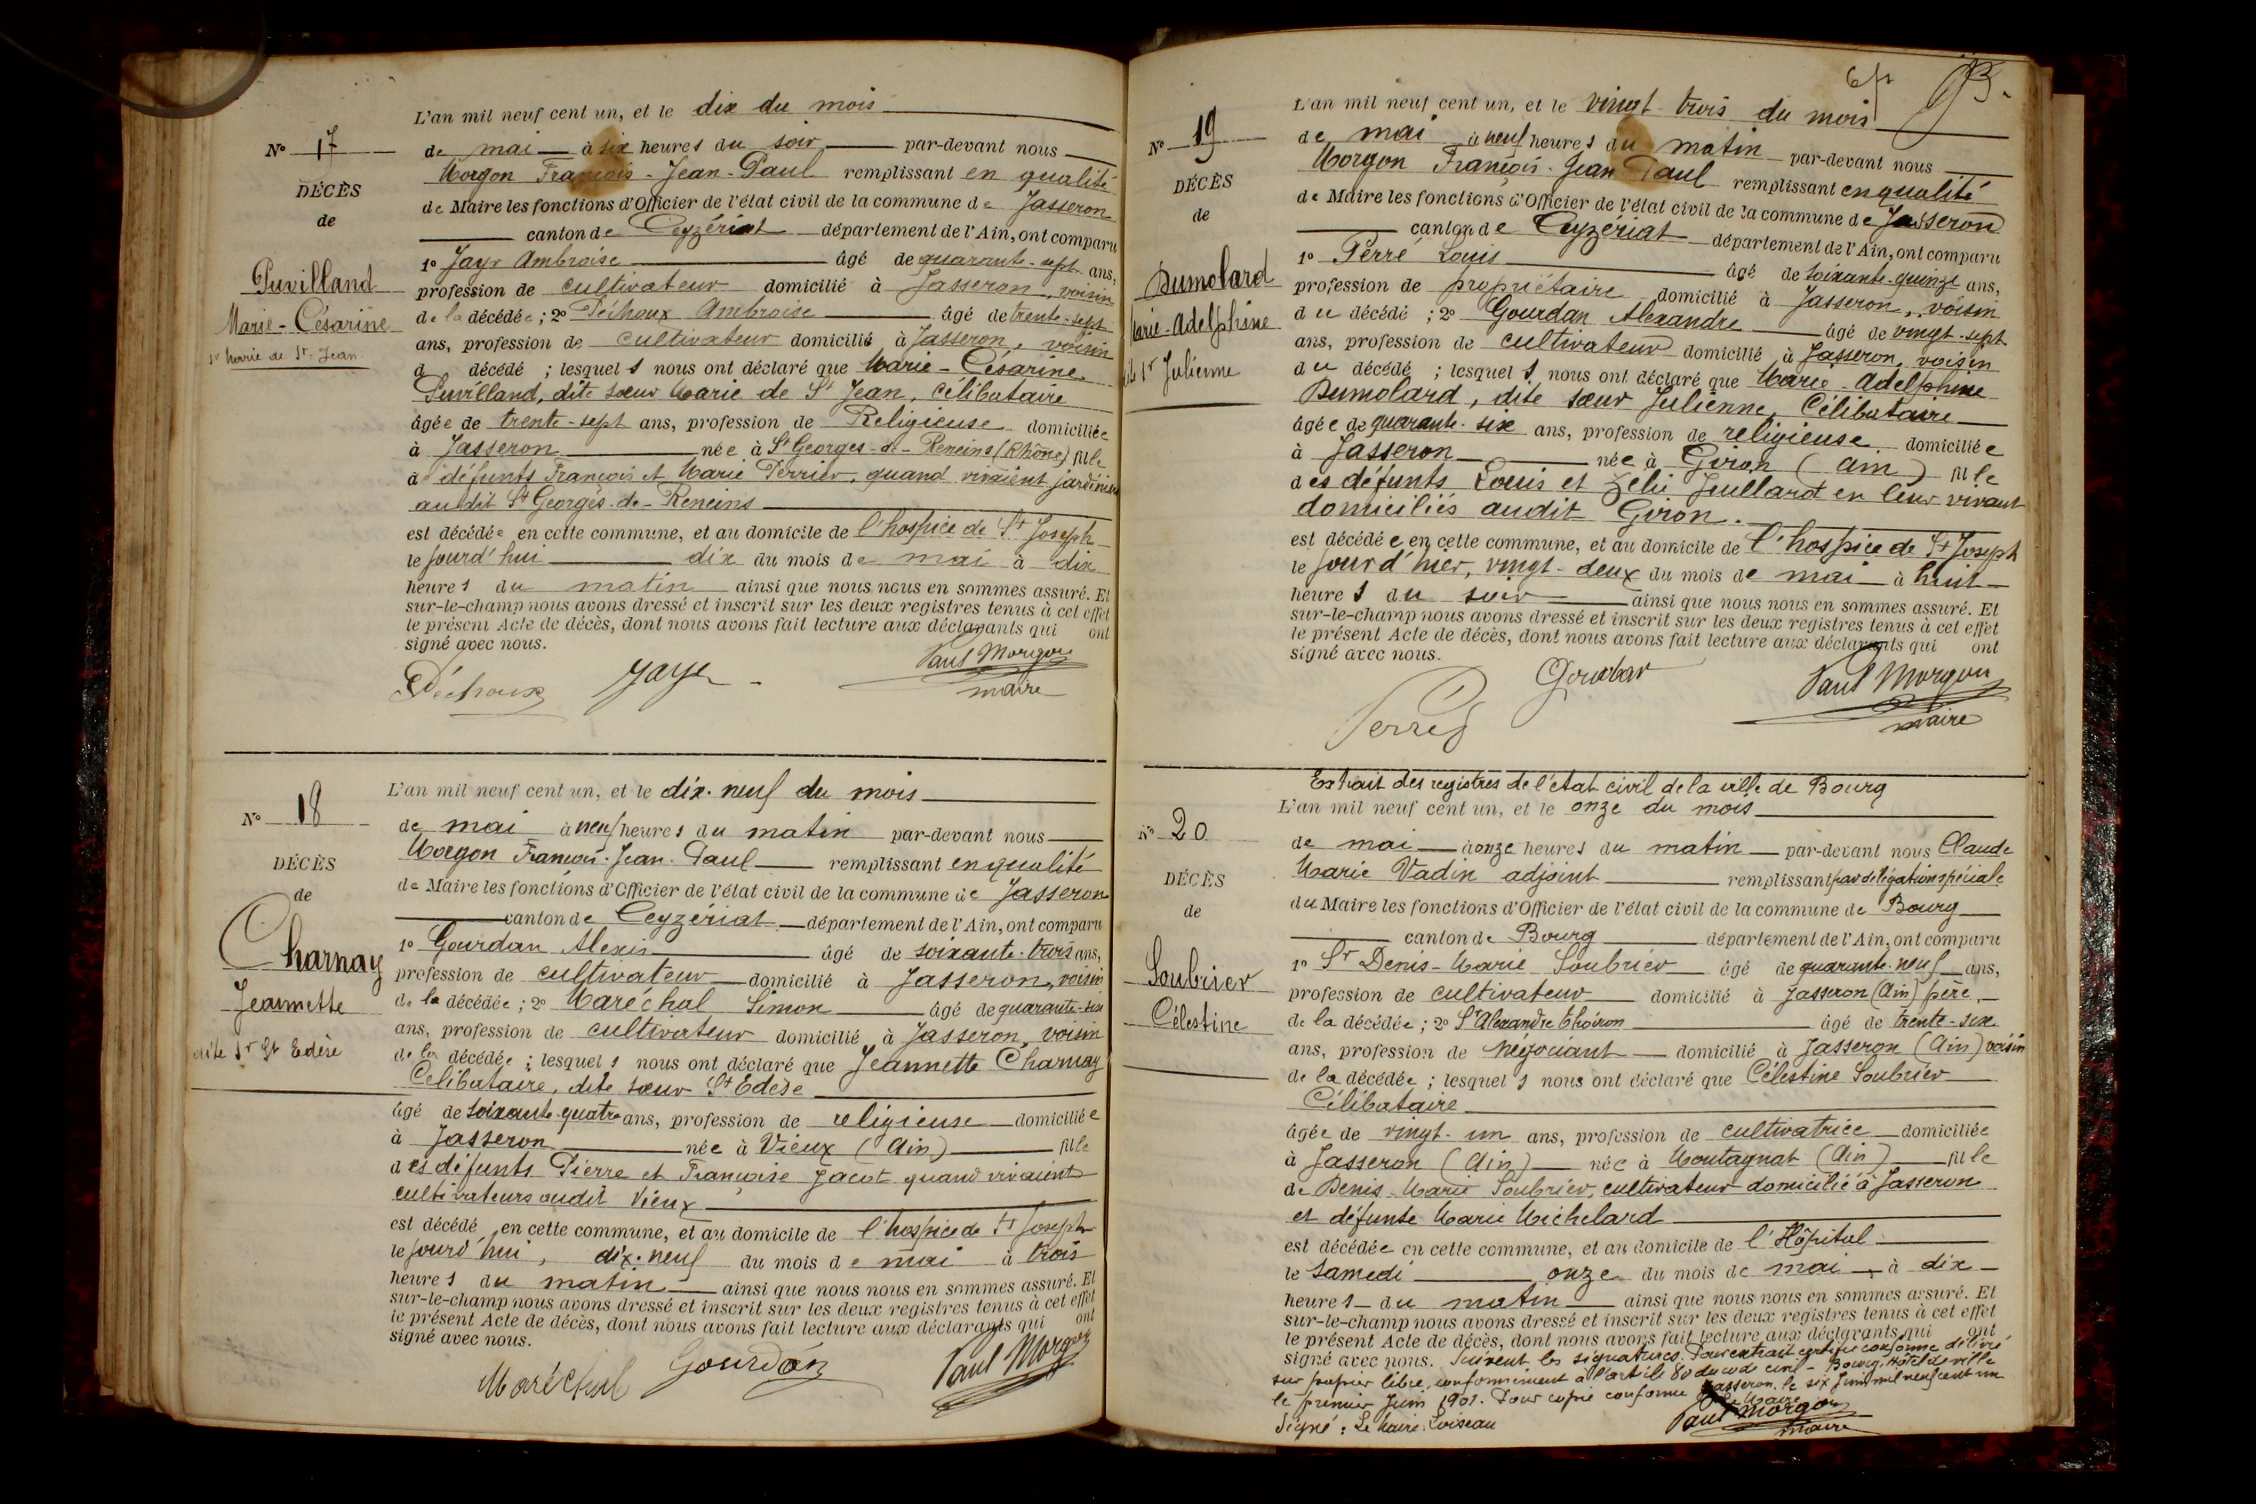 L'an mil neuf cent un, et le dix du mois
No 17
de mai à six heures du soir par-devant nous
Morgon François-Jean-Paul remplissant en qualité
DÉCÈS
de Maire les fonctions d'Officier de l'état civil de la commune de Jasseron
de
canton de Ceyzériat département de l'Ain, ont comparu
1o Jayr Ambroise âgé de quarante-sept ans,
Puvilland
profession de cultivateur domicilié à Jasseron, voisin
Marie-Césarine
de la décédée; 2o Péchoux Ambroise âgé de trente-sept
ans, profession de cultivateur domicilié à Jasseron, voisin
Sr Marie de St-Jean
d décédé ; lesquels nous ont déclaré que Marie-Césarine
Puvilland, dite sœur Marie de St Jean, célibataire
âgée de trente-sept ans, profession de Religieuse domiciliée
à Jasseron née à St Georges-de-Reneins (Rhône) fille
à défunts François et Marie Perrier, quand vivaient jardiniers
audit St Georges-de-Reneins
est décédée en cette commune, et au domicile de l'hospice de St Joseph
le jourd'hui dix du mois de mai à dix
heures du matin ainsi que nous nous en sommes assuré. Et
sur-le-champ nous avons dressé et inscrit sur les deux registres tenus à cet effet
le présent Acte de décès, dont nous avons fait lecture aux déclarants qui ont
signé avec nous.
Péchoux Jayr Paul Morgon
maire
L'an mil neuf cent un, et le dix-neuf du mois
No 18
de mai à neuf heures du matin par-devant nous
Morgon François-Jean-Paul remplissant en qualité
DÉCÈS
de Maire les fonctions d'Officier de l'état civil de la commune de Jasseron
de
canton de Ceyzériat département de l'Ain, ont comparu
Charnay
1o Gourdan Alexis âgé de soixante-trois ans,
profession de cultivateur domicilié à Jasseron, voisin
Jeannette
de la décédée; 2o Maréchal Simon âgé de quarante-six
ans, profession de cultivateur domicilié à Jasseron, voisin
dite Sr St Edèse
de la décédée; lesquels nous ont déclaré que Jeannette Charnay
Célibataire, dite sœur St Edèse
âgé de soixante-quatre ans, profession de religieuse domiciliée
à Jasseron née à Vieux (Ain) fille
des défunts Pierre et Françoise Jacot quand vivaient
cultivateurs audit Vieux
est décédé en cette commune, et au domicile de l'hospice de St Joseph
le jourd'hui, dix-neuf du mois de mai à trois
heures du matin ainsi que nous nous en sommes assuré. Et
sur-le-champ nous avons dressé et inscrit sur les deux registres tenus à cet effet
le présent Acte de décès, dont nous avons fait lecture aux déclarants qui ont
signé avec nous.
Maréchal Gourdan Paul Morgon
L'an mil neuf cent un, et le vingt-trois du mois
No 19
de mai à neuf heures du matin par-devant nous
Morgon François-Jean Paul remplissant en qualité
DÉCÈS
de Maire les fonctions d'Officier de l'état civil de la commune de Jasseron
de
canton de Ceyzériat département de l'Ain, ont comparu
1o Perré Louis âgé de soixante-quinze ans,
Dumolard
profession de propriétaire domicilié à Jasseron, voisin
Marie-Adelphine
du décédé ; 2o Gourdan Alexandre âgé de vingt-sept
ans, profession de cultivateur domicilié à Jasseron, voisin
Sr Julienne
du décédé ; lesquels nous ont déclaré que Marie-Adelphine
Dumolard, dite sœur Julienne, Célibataire
âgée de quarante-six ans, profession de religieuse domiciliée
à Jasseron née à Giron (Ain) fille
des défunts Louis et Zelie Juillard en leur vivant
domiciliés audit Giron.
est décédée en cette commune, et au domicile de l'hospice de St Joseph
le jour d'hier, vingt-deux du mois de mai à huit
heures du soir ainsi que nous nous en sommes assuré. Et
sur-le-champ nous avons dressé et inscrit sur les deux registres tenus à cet effet
le présent Acte de décès, dont nous avons fait lecture aux déclarants qui ont
signé avec nous.
Perré Paul Morgon
maire
Extrait des registres de l'état civil de la ville de Bourg
L'an mil neuf cent un, et le onze du mois
No 20
de mai à onze heures du matin par-devant nous Claude
Marie Vadin adjoint remplissant par délégation spéciale
DÉCÈS
du Maire les fonctions d'Officier de l'état civil de la commune de Bourg
de
canton de Bourg département de l'Ain, ont comparu
1o Sr Denis-Marie Soubrier âgé de quarante-neuf ans,
Soubrier
profession de cultivateur domicilié à Jasseron (Ain) père,
Célestine
de la décédée; 2o Sr Alexandre Thoiron âgé de trente-six
ans, profession de négociant domicilié à Jasseron (Ain) voisin
de la décédée ; lesquels nous ont déclaré que Célestine Soubrier
Célibataire
âgée de vingt-un ans, profession de cultivatrice domiciliée
à Jasseron (Ain) née à Montagnat (Ain) fille
de Denis-Marie Soubrier, cultivateur domicilié à Jasseron
et défunte Marie Michelard
est décédée en cette commune, et au domicile de l'Hôpital
le Samedi onze du mois de mai à dix
heures du matin ainsi que nous nous en sommes assuré. Et
sur-le-champ nous avons dressé et inscrit sur les deux registres tenus à cet effet
le présent Acte de décès, dont nous avons fait lecture aux déclarants qui ont
signé avec nous. Suivent les signatures. Pour extrait certifié conforme délivré
sur papier libre, conformément à l'article 80 du code civil - Bourg, Hôtel de ville
le premier Juin 1901. Pour copie conforme Jasseron, le six Juin mil neuf cent un
Signé : Le Maire : Loiseau
Le Maire
Paul Morgon
maire